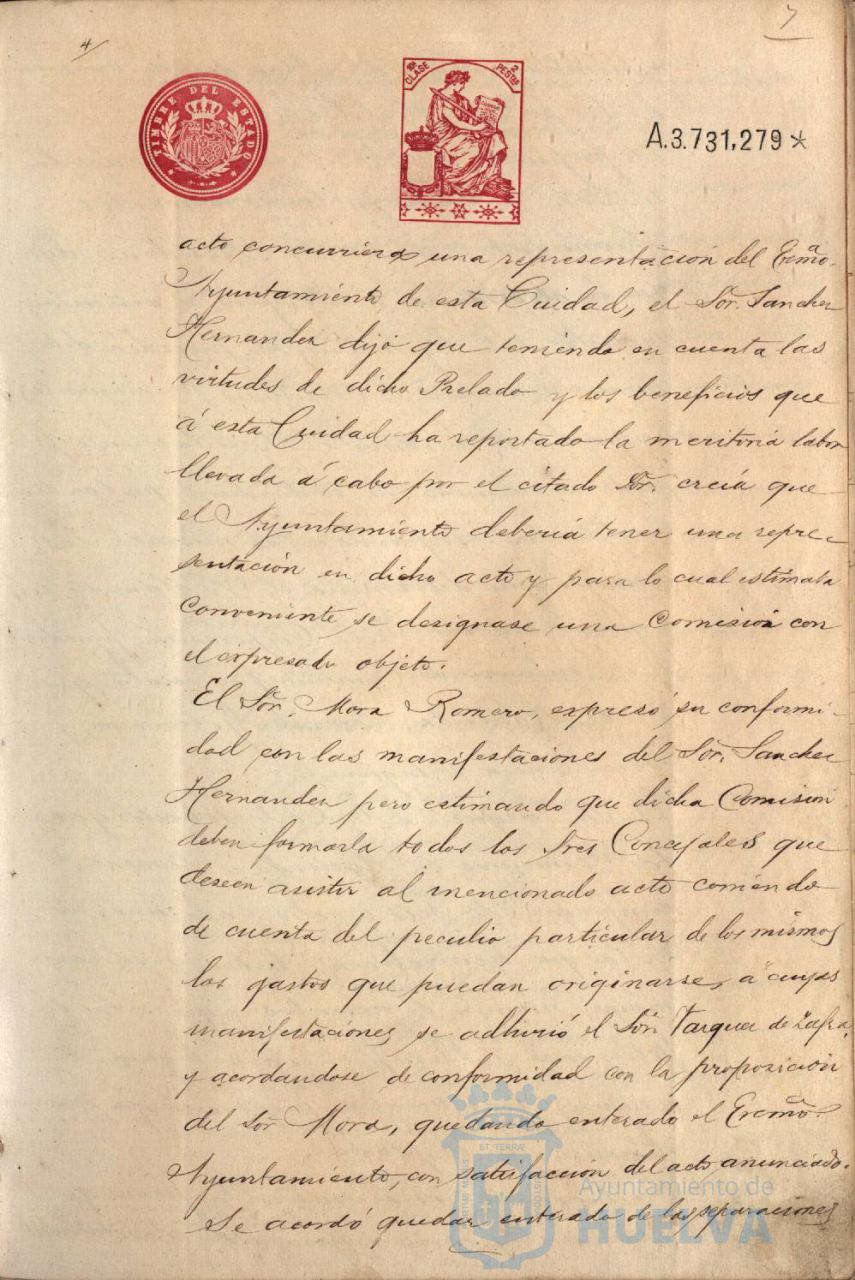 4
7
TIMBRE DEL ESTADO
10ª CLASE
2 PESTAS
A.3.731,279*
acto concurriera una representación del Excmo.
Ayuntamiento de esta Cuidad, el Sor. Sanchez
Hernandez dijo que teniendo en cuenta las
virtudes de dicho Prelado y los beneficios que
á esta Cuidad ha reportado la meritoria labor
llevada á cabo por el citado Sor. creia que
el Ayuntamiento deberia tener una repre-
sentación en dicho acto y para lo cual estimaba
conveniente, se designase una Comision con
el expresado objeto.
El Sor. Mora Romero, expresó su conformi-
dad con las manifestaciones del Sor. Sanchez
Hernandez pero estimando que dicha Comision
deben formarla todos los Sres Concejales que
deseen asistir al mencionado acto corriendo
de cuenta del peculio particular de los mismos
los gastos que puedan originarse, a cuyas
manifestaciones, se adhirió el Sor. Vazquez de Zafra,
y acordandose de conformidad con la proposicion
del Sor Mora, quedando enterado el Excmo.
Ayuntamiento, con satisfacción del acto anunciado.
Se acordó quedar enterado de las separaciones
ET TERRA
Ayuntamiento de
HUELVA